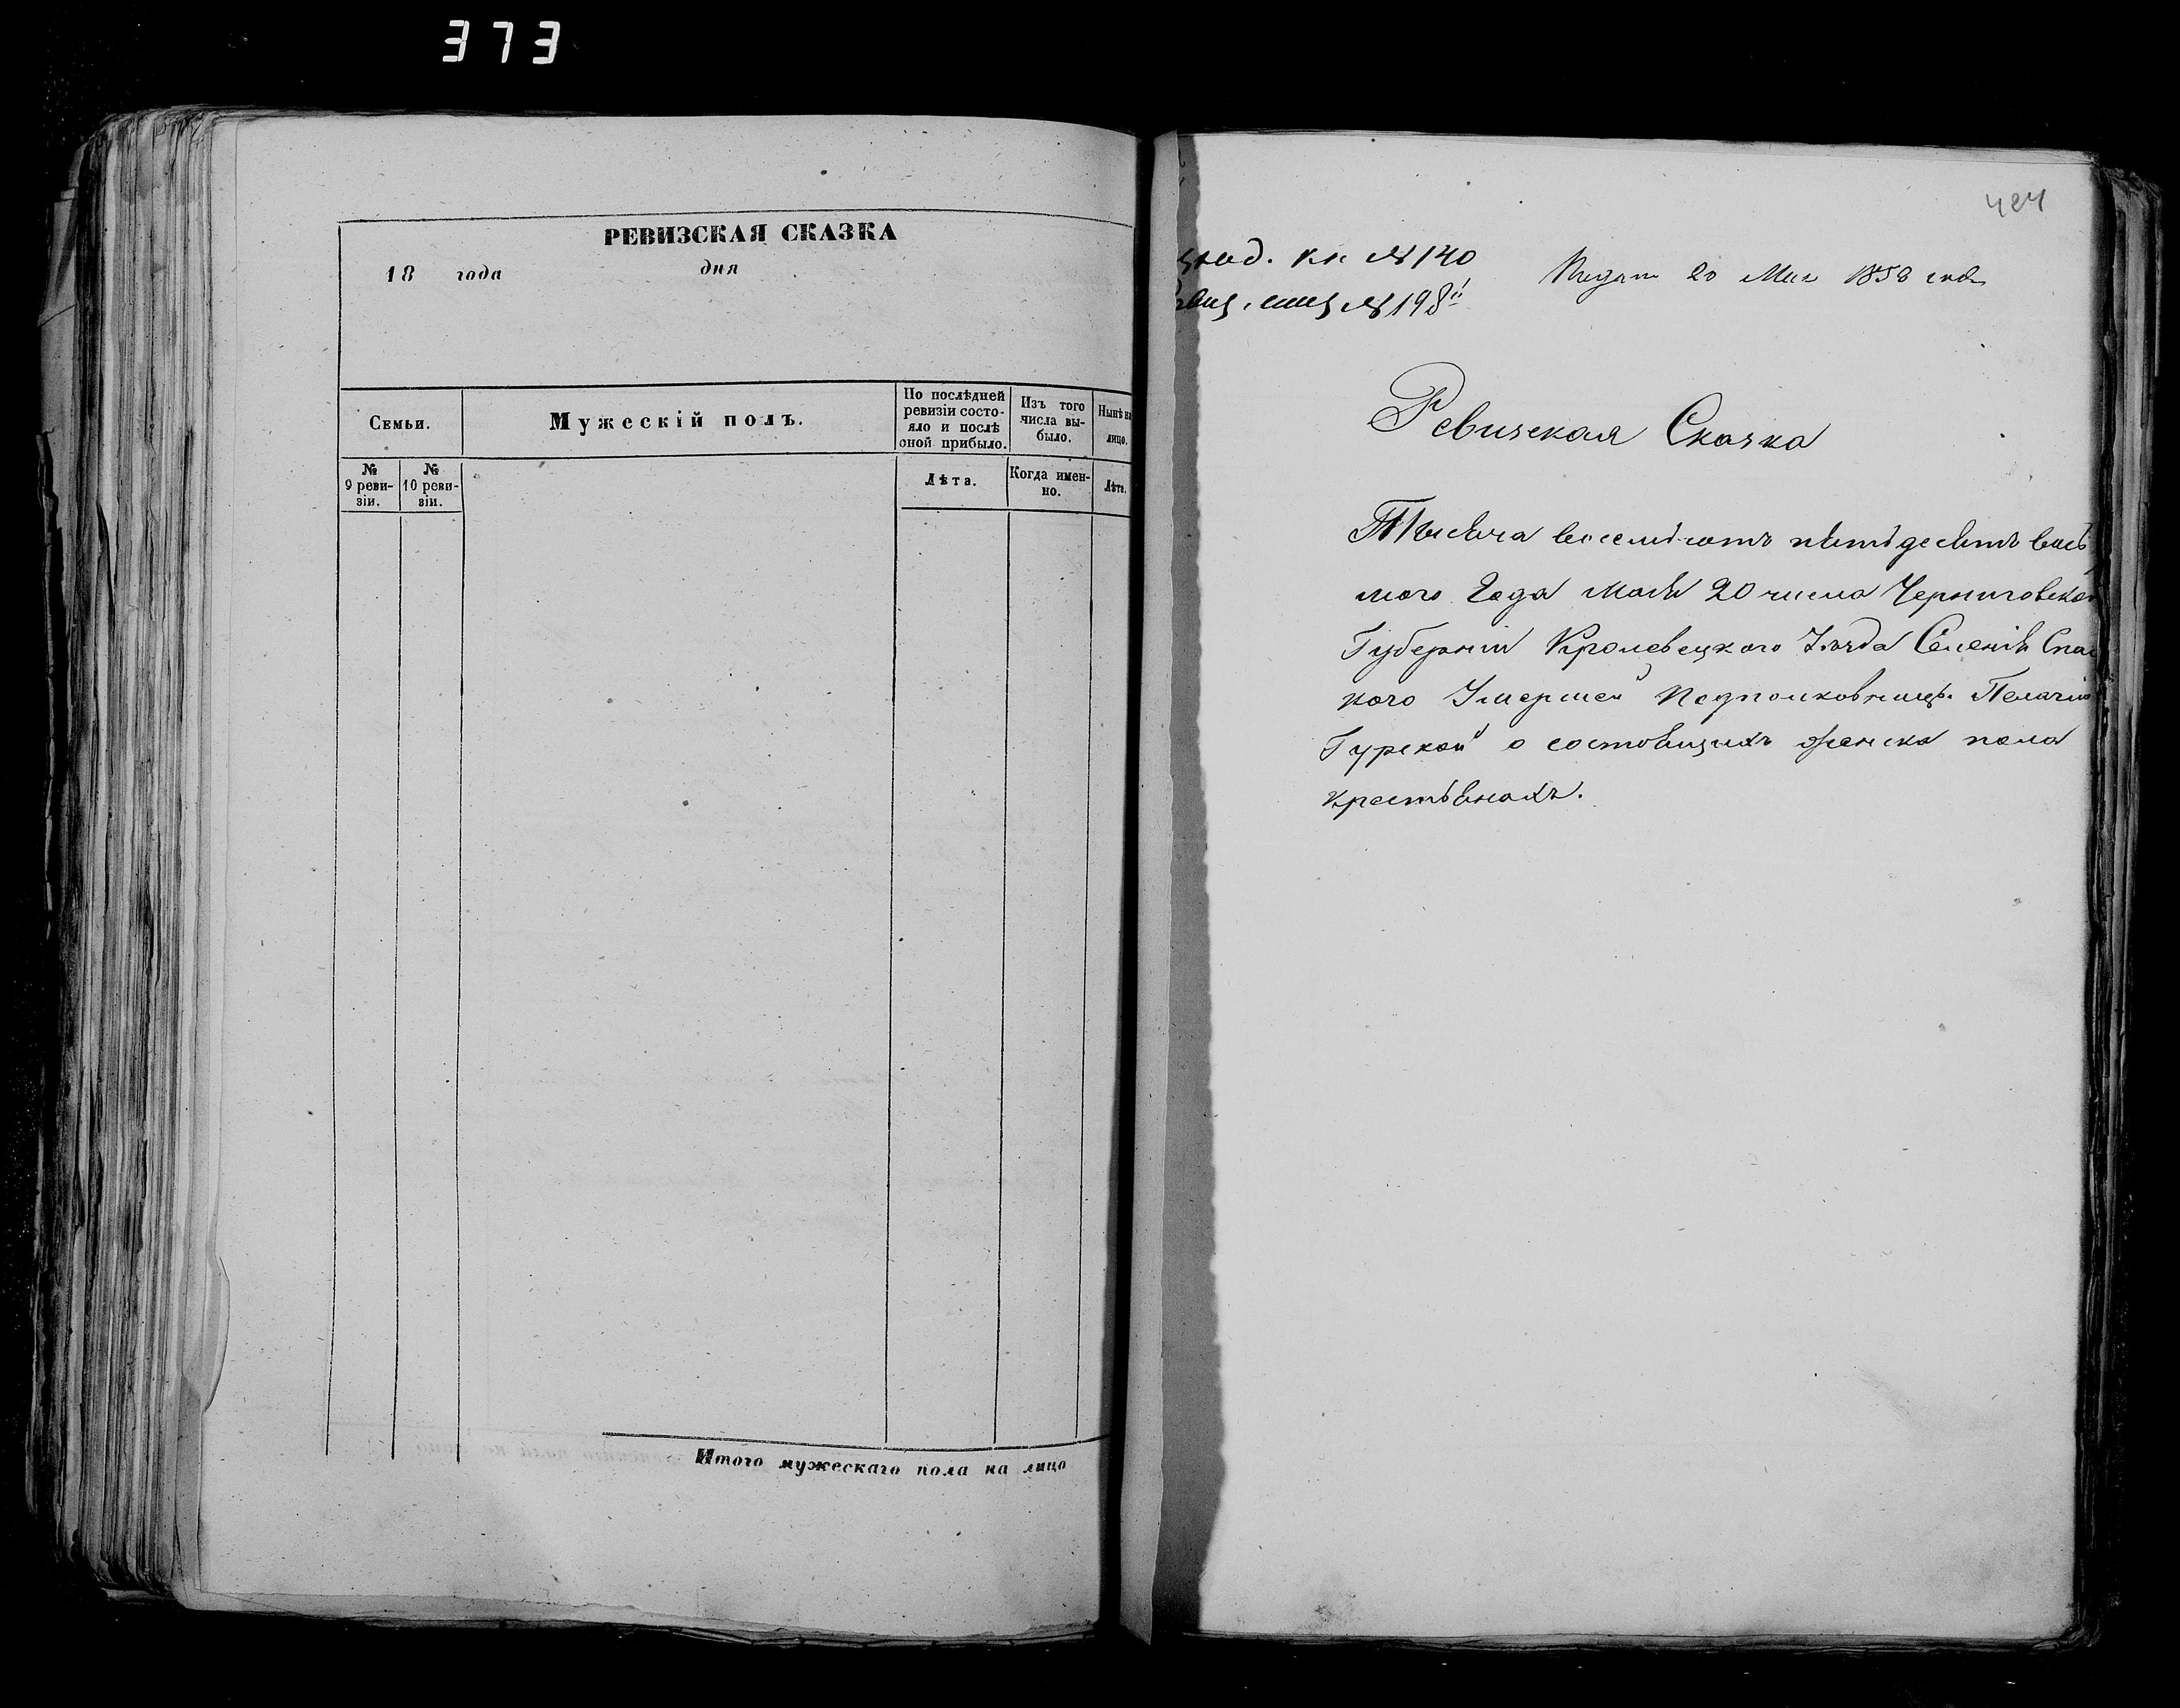 373
РЕВИЗСКАЯ СКАЗКА
18 года дня
Семьи.
Мужескій полъ.
По послѣдней
ревизіи состо-
яло и послѣ
оной прибыло.
Изъ того
числа вы-
было.
Нынѣ на
лицо.
№
9 реви-
зіи.
№
10 реви-
зіи.
Лѣта.
Когда имен-
но.
Лѣта.
Итого мужескаго пола на лицо
424
кн №140
№198
20 Мая 1858 года
Ревизская Сказка
Тысяча восемьсотъ пятьдесятъ вось
мого Года мая 20 числа Черниговской
Губерніи Кролевецкого Уѣзда Селенія Спас
кого Умершей Подполковницѣ Пелагіи
Гурской о состоящихъ женска пола
крестьянахъ.